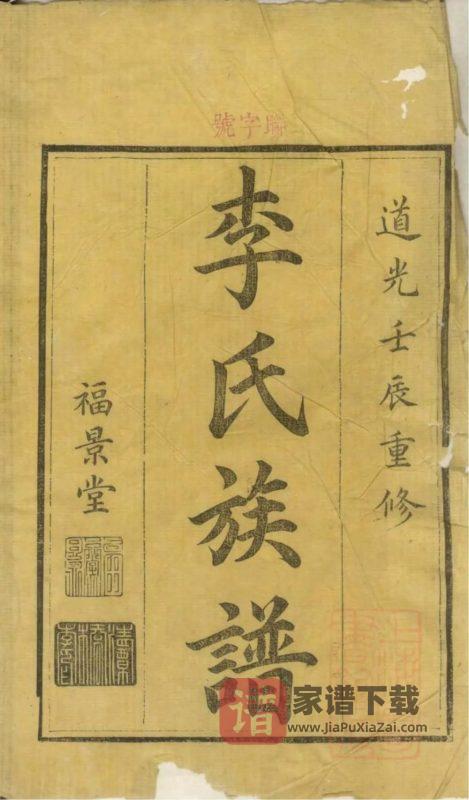 聯字號
道光壬辰重修
李氏族譜
福景堂
谱
家谱下载
www.JiaPuXiaZai.com